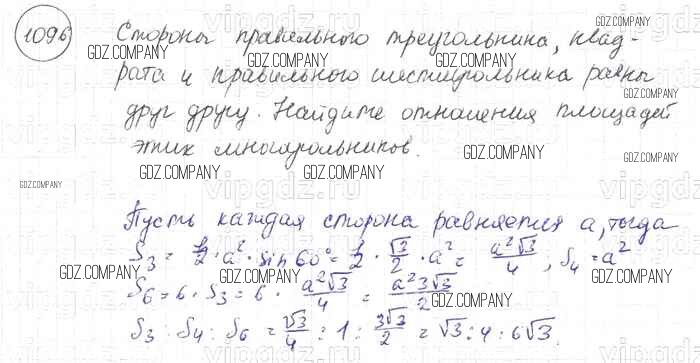 1096
Стороны правильного треугольника, квад-
рата и правильного шестиугольника равны
друг другу. Найдите отношения площадей
этих многоугольников.
Пусть каждая сторона равняется a, тогда
S₃ = 1/2 · a² · sin 60° = 1/2 · √3/2 · a² = a²√3/4 ; S₄ = a²
S₆ = 6 · S₃ = 6 · a²√3/4 = a²3√3/2
S₃ : S₄ : S₆ = √3/4 : 1 : 3√3/2 = √3 : 4 : 6√3.
GDZ.COMPANY
vipgdz.ru